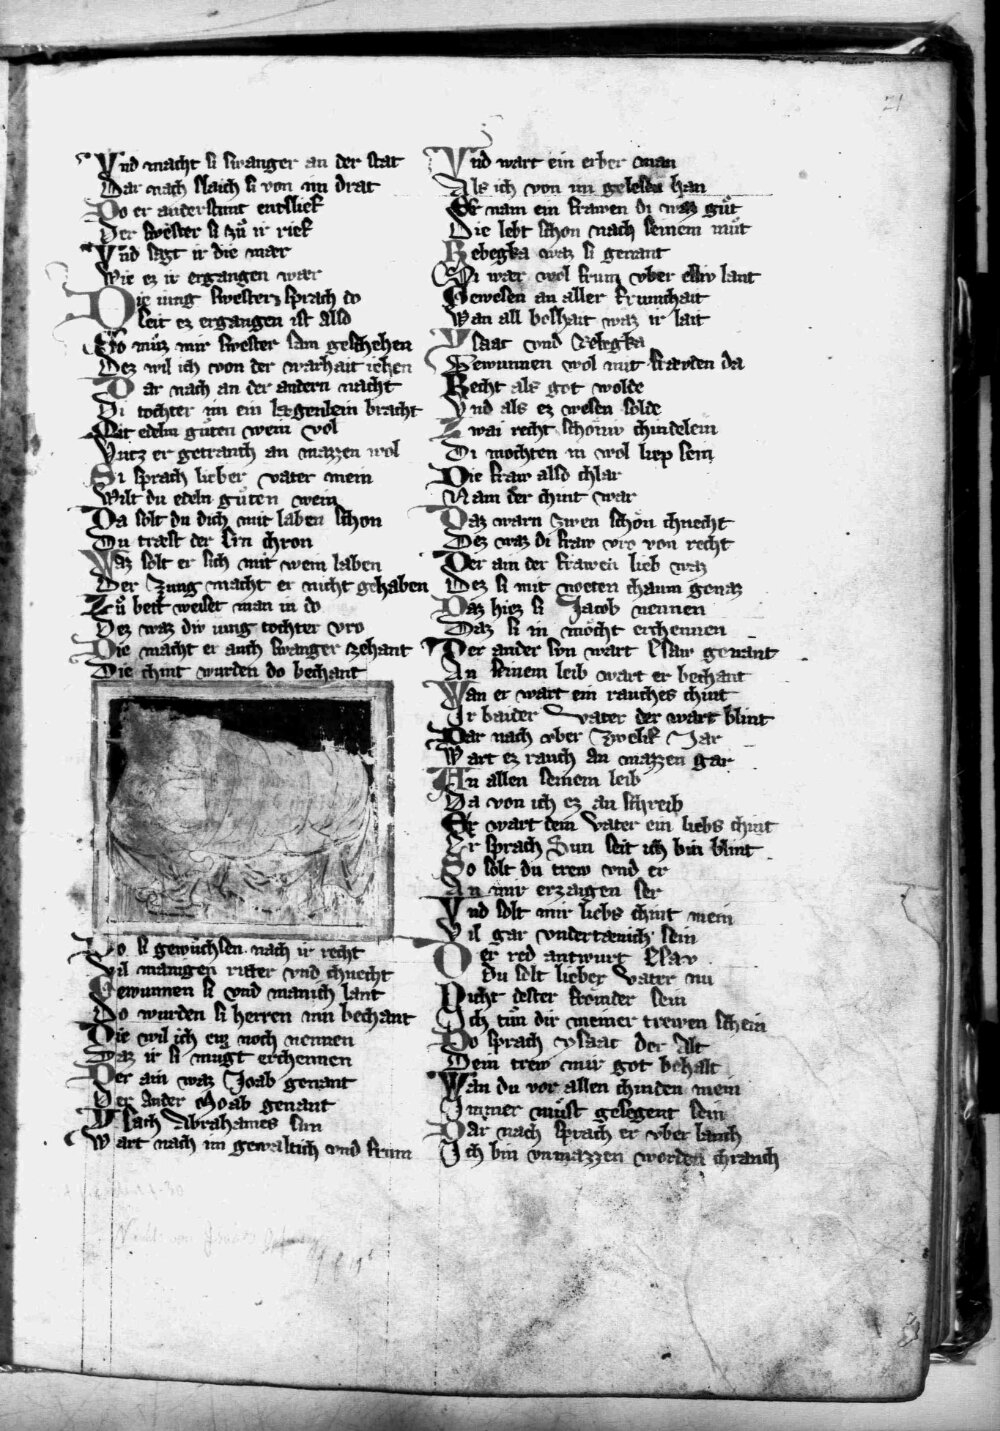 21
Vnd macht si swanger an der stat
Dar nach slaich si von im drat
Do er anderstunt entslief
Der swester si zů ir rief
Vnd sagt ir die mær
Wie ez ir ergangen wær
Die iung swester sprach do
Seit ez ergangen ist also
So můz mir swester sam geschehen
Dez wil ich von der warhait iehen
Dar nach an der andern nacht
Di tochter im ein lægenlein bracht
Mit edelm gůten wein vol
Vntz er getranch an mazzen wol
Si sprach lieber vater mein
Wilt du edeln gůten wein
Da solt du dich mit laben schon
Du træst der ern chron
Waz solt er sich mit wein laben
Der zung macht er nicht gehaben
Zů bett weiset man in do
Dez waz div iung tochter vro
Die macht er auch swanger zehant
Die chint wurden do bechant
Do si gewůchsen nach ir recht
Vil manigen ritter vnd chnecht
Gewunnen si vnd manich lant
Do wurden si herren inn bechant
Die wil ich ew noch nennen
Daz ir si mugt erchennen
Der ain waz Joab genant
Der ander Moab genant
Ysach Abrahames sun
Wart nach im gewaltich vnd frum
Vnd wart ein erber man
Als ich von im gelesen han
Er nam ein frawen di waz gůt
Die lebt schon nach seinem můt
Rebegka waz si genant
Si wær wol frum vber ellew lant
Gewesen an aller frumchait
Wan all boshait waz ir lait
Ysaac vnd Rebegka
Gewunnen wol mit frævden da
Recht als got wolde
Vnd als ez wesen solde
Zwai recht schönw chindelein
Di mochten in wol liep sein
Die fraw also chlar
Nam der chint war
Daz warn zwen schön chnecht
Dez waz di fraw vro von recht
Der ain der frawen lieb waz
Dez si mit nöten chaum genaz
Daz hiez si Jacob nennen
Daz si in möcht erchennen
Der ander sun wart Esaw genant
An seinem leib wart er bechant
Wan er wart ein rauches chint
Ir baider vater der wart blint
Dar nach vber zwelif Jar
Wart ez rauch an mazzen gar
An allen seinem leib
Da von ich ez an schreib
Er wart dem vater ein liebs chint
Er sprach Sun seit ich bin blint
So solt du trew vnd er
An mir erzaigen ser
Vnd solt mir liebs chint mein
Vil gar vndertænich sein
Der red antwurt Esav
Du solt lieber vater nu
Nicht dester frömder sein
Ich tůn dir meiner trewen schein
Do sprach ysaac der alt
Dein trew mir got behalt
Wan du vor allen chinden mein
Immer můst gesegent sein
Dar nach sprach er vber lanch
Ich bin vnmazzen worden chranch